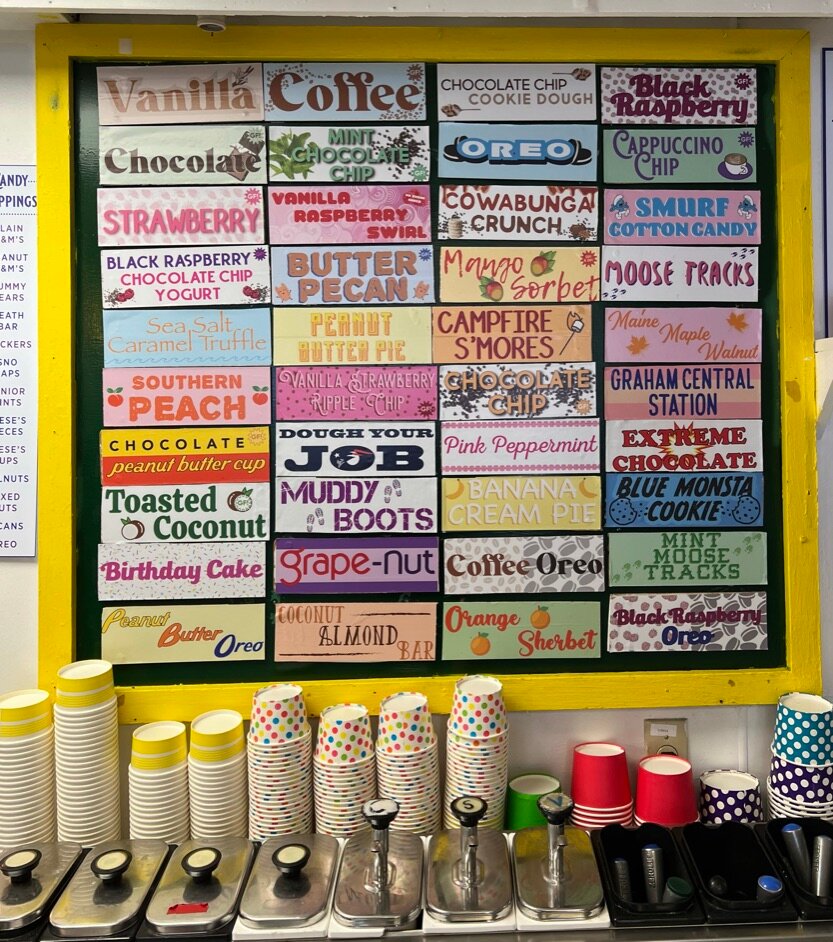 ANDY
PPINGS
LAIN
&M'S
ANUT
&M'S
UMMY
EARS
EATH
BAR
CKERS
SNO
APS
UNIOR
INTS
ESE'S
ECES
ESE'S
UPS
LNUTS
IXED
UTS
CANS
REO
Vanilla
Chocolate
GF!
STRAWBERRY
BLACK RASPBERRY
CHOCOLATE CHIP
YOGURT
Sea Salt
Caramel Truffle
SOUTHERN
PEACH
CHOCOLATE
GF!
peanut butter cup
Toasted
GF!
Coconut
Birthday Cake
Peanut
Butter
Oreo
Coffee
GF!
MINT
CHOCOLATE
CHIP
GF!
VANILLA
RASPBERRY
SWIRL
BUTTER
PECAN
PEANUT
BUTTER PIE
VANILLA STRAWBERRY
RIPPLE CHIP
GF!
DOUGH YOUR
JOB
MUDDY
BOOTS
grape-nut
COCONUT
ALMOND
BAR
CHOCOLATE CHIP
COOKIE DOUGH
OREO
COWABUNGA
CRUNCH
Mango
Sorbet
CAMPFIRE
S'MORES
CHOCOLATE
CHIP
GF!
Pink Peppermint
BANANA
CREAM PIE
Coffee Oreo
Orange
Sherbet
Black
Raspberry
GF!
CAPPUCCINO
CHIP
GF!
SMURF
COTTON CANDY
MOOSE TRACKS
Maine
Maple
Walnut
GRAHAM CENTRAL
STATION
EXTREME
CHOCOLATE
BLUE MONSTA
COOKIE
MINT
MOOSE
TRACKS
Black Raspberry
Oreo
C
S
V